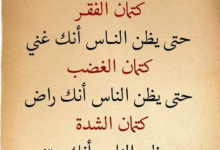 كتمان الفقر
حتى يظن النـاس أنك غني
كتمان الغضب
حتى يظن الناس أنك راض
كتمان الشدة